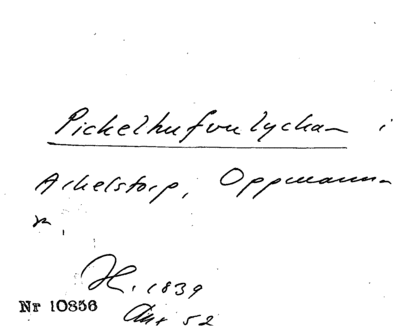 Pickelhufvulyckan i
Arkelstorp, Oppmanna
H. 1839
Nr 10856